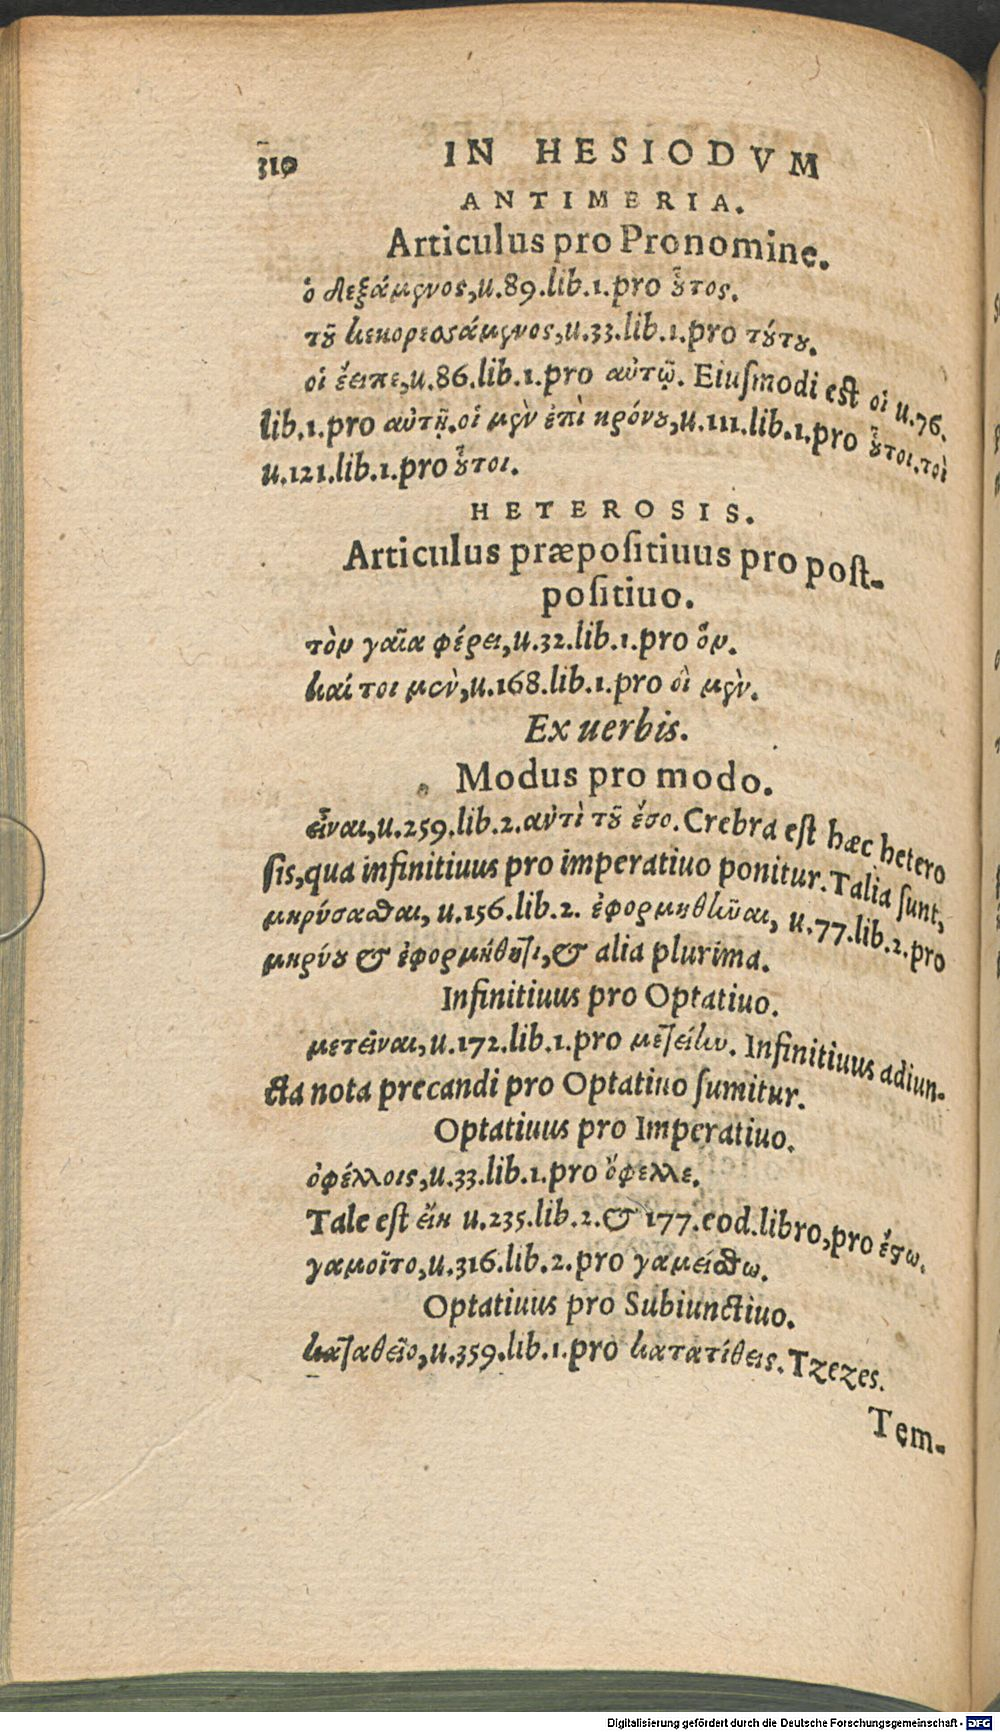 310 IN HESIODVM
ANTIMERIA.
Articulus pro Pronomine.
ὁ δεξάμενος, u.89.lib.1.pro οὗτος.
τοῦ κεκορεσσάμενος, u.33.lib.1.pro τούτου.
οἱ ἔειπε, u.86.lib.1.pro αὐτῷ. Eiuſmodi eſt οἱ u.76.
lib.1.pro αὐτῇ. οἱ μὲν ἐπὶ κρόνου, u.111.lib.1.pro οὗτοι. τοὶ
u.121.lib.1.pro οὗτοι.
HETEROSIS.
Articulus præpoſitiuus pro poſt-
poſitiuo.
τὸν γαῖα φέρει, u.32.lib.1.pro ὅν.
καί τοι μὲν, u.168.lib.1.pro οἳ μὲν.
Ex uerbis.
Modus pro modo.
εἶναι, u.259.lib.2. αντὶ τοῦ ἔσο. Crebra eſt hæc hetero
ſis, qua infinitiuus pro imperatiuo ponitur. Talia ſunt,
μηρύσασθαι, u.156.lib.2. ἐφορμηθῆναι, u.77.lib.2.pro
μηρύου & ἐφορμήθητι, & alia plurima.
Infinitiuus pro Optatiuo.
μετεῖναι, u.172.lib.1.pro μετείην. Infinitiuus adiun-
cta nota precandi pro Optatiuo ſumitur.
Optatiuus pro Imperatiuo.
ὀφέλλοις, u.33.lib.1.pro ὄφελλε.
Tale eſt εἴη u.235.lib.2.& 177.eod.libro, pro ἔστω.
γαμοῖτο, u.316.lib.2.pro γαμείσθω.
Optatiuus pro Subiunctiuo.
καταθεῖο, u.359.lib.1.pro κατατίθεις. Tzezes.
Tem-
Digitalisierung gefördert durch die Deutsche Forschungsgemeinschaft - DFG